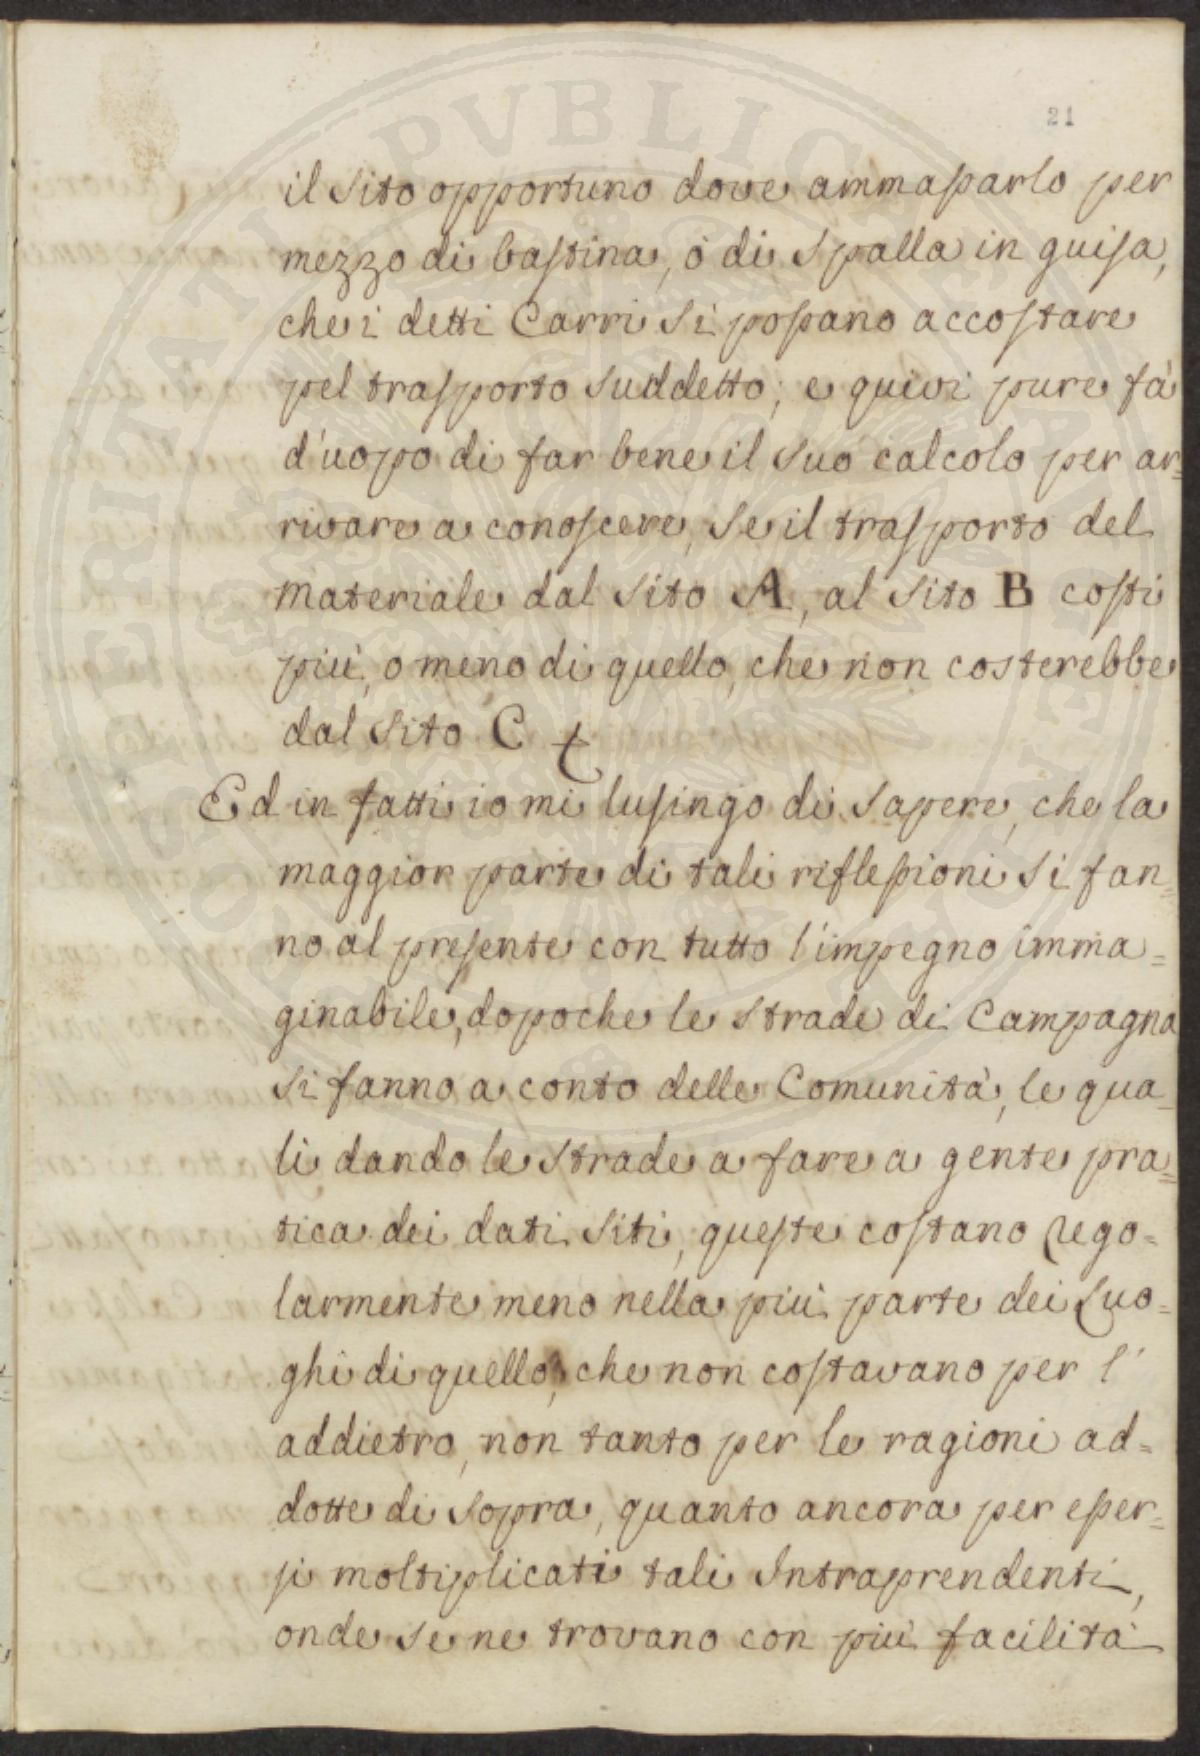 21
il sito opportuno dove ammassarlo per
mezzo di bastina, ò di spalla in guisa,
che i detti Carri si possano accostare
pel trasporto suddetto; e quivi pure fà
d'uopo di far bene il suo calcolo per ar=
rivare a conoscere, se il trasporto del
materiale dal sito A, al sito B costi
più, o meno di quello, che non costerebbe
dal sito C
Ed in fatti io mi lusingo di sapere, che la
maggior parte di tali riflessioni si fan=
no al presente con tutto l'impegno imma=
ginabile, dopoche le strade di Campagna
si fanno a conto delle Comunità, le qua=
li dando le strade a fare a gente pra=
tica dei dati siti, queste costano rego=
larmente meno nella più parte dei Luo=
ghi di quello, che non costavano per l'
addietro, non tanto per le ragioni ad=
dotte di sopra, quanto ancora per esser=
si moltiplicati tali Intraprendenti,
onde se ne trovano con più facilità